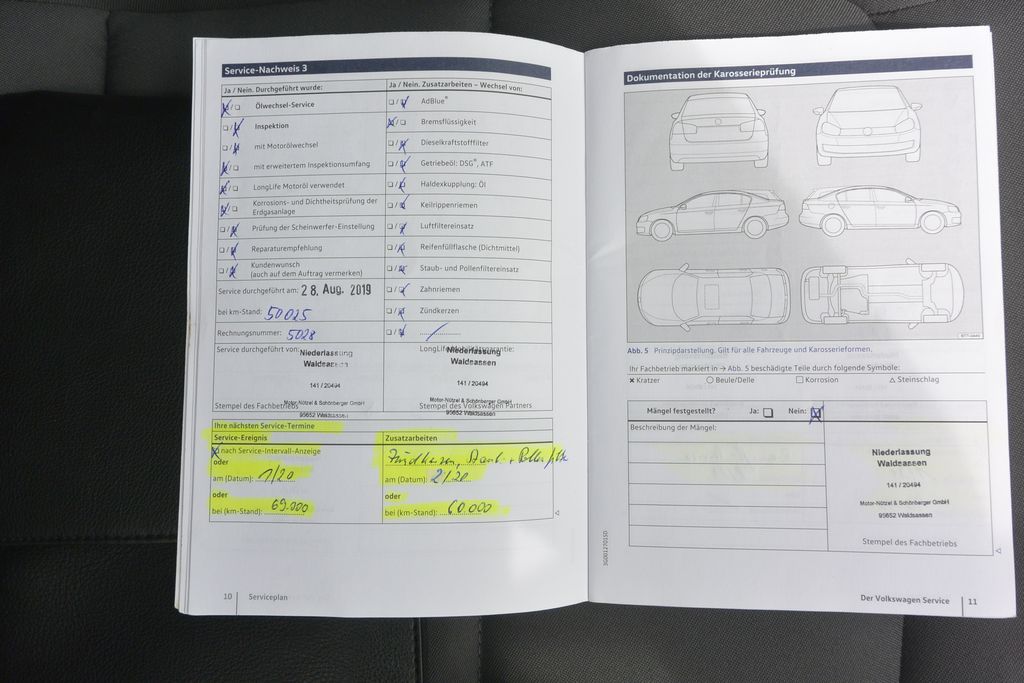 Service-Nachweis 3
Ja / Nein. Durchgeführt wurde:
Ölwechsel-Service
Inspektion
mit Motorölwechsel
mit erweitertem Inspektionsumfang
LongLife Motoröl verwendet
Korrosions- und Dichtheitsprüfung der
Erdgasanlage
Prüfung der Scheinwerfer-Einstellung
Reparaturempfehlung
Kundenwunsch
(auch auf dem Auftrag vermerken)
Service durchgeführt am: 28. Aug. 2019
bei km-Stand: 50025
Rechnungsnummer: 5028
Service durchgeführt von:
Niederlassung
Waldsassen
141 / 20494
Motor-Nützel & Schönberger GmbH
Stempel des Fachbetriebs
95652 Waldsassen
Ja / Nein. Zusatzarbeiten – Wechsel von:
AdBlue®
Bremsflüssigkeit
Dieselkraftstofffilter
Getriebeöl: DSG®, ATF
Haldexkupplung: Öl
Keilrippenriemen
Luftfiltereinsatz
Reifenfüllflasche (Dichtmittel)
Staub- und Pollenfiltereinsatz
Zahnriemen
Zündkerzen
LongLife Mobilitätsgarantie:
Niederlassung
Waldsassen
141 / 20494
Motor-Nützel & Schönberger GmbH
Stempel des Volkswagen Partners
95652 Waldsassen
Ihre nächsten Service-Termine
Service-Ereignis
nach Service-Intervall-Anzeige
oder
am (Datum): 1/20
oder
bei (km-Stand): 69.000
Zusatzarbeiten
Zündkerzen, Staub + Pollenfilter
am (Datum): 2/20
oder
bei (km-Stand): 60.000
10 Serviceplan
Dokumentation der Karosserieprüfung
Abb. 5 Prinzipdarstellung. Gilt für alle Fahrzeuge und Karosserieformen.
Ihr Fachbetrieb markiert in → Abb. 5 beschädigte Teile durch folgende Symbole:
Kratzer Beule/Delle Korrosion Steinschlag
Mängel festgestellt? Ja: Nein:
Beschreibung der Mängel:
Niederlassung
Waldsassen
141 / 20494
Motor-Nützel & Schönberger GmbH
95652 Waldsassen
Stempel des Fachbetriebs
Der Volkswagen Service 11